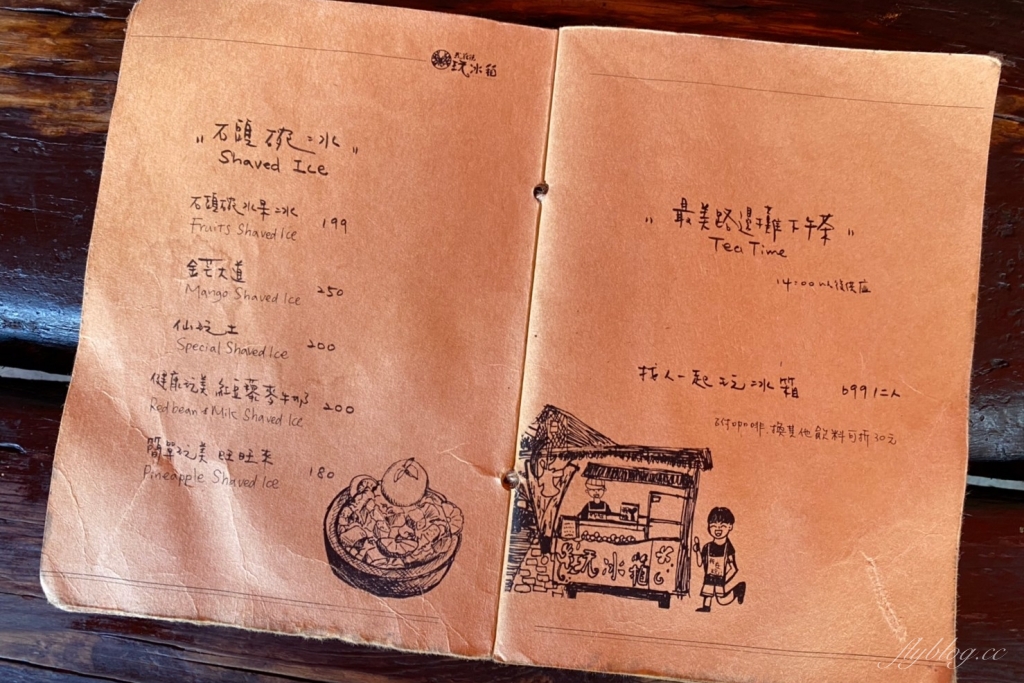 玩冰箱
"石頭碗冰"
Shaved Ice
石頭碗水果冰 199
Fruits Shaved Ice
金芒大道 250
Mango Shaved Ice
仙玩土 200
Special Shaved Ice
健康玩美 紅豆藜麥牛奶 200
Redbean & Milk Shaved Ice
簡單玩美 旺旺來 180
Pineapple Shaved Ice
"最美路邊攤下午茶"
Tea Time
14:00以後供應
找人一起玩冰箱 699/二人
附咖啡.換其他飲料可折30元
玩冰箱
flyblog.cc